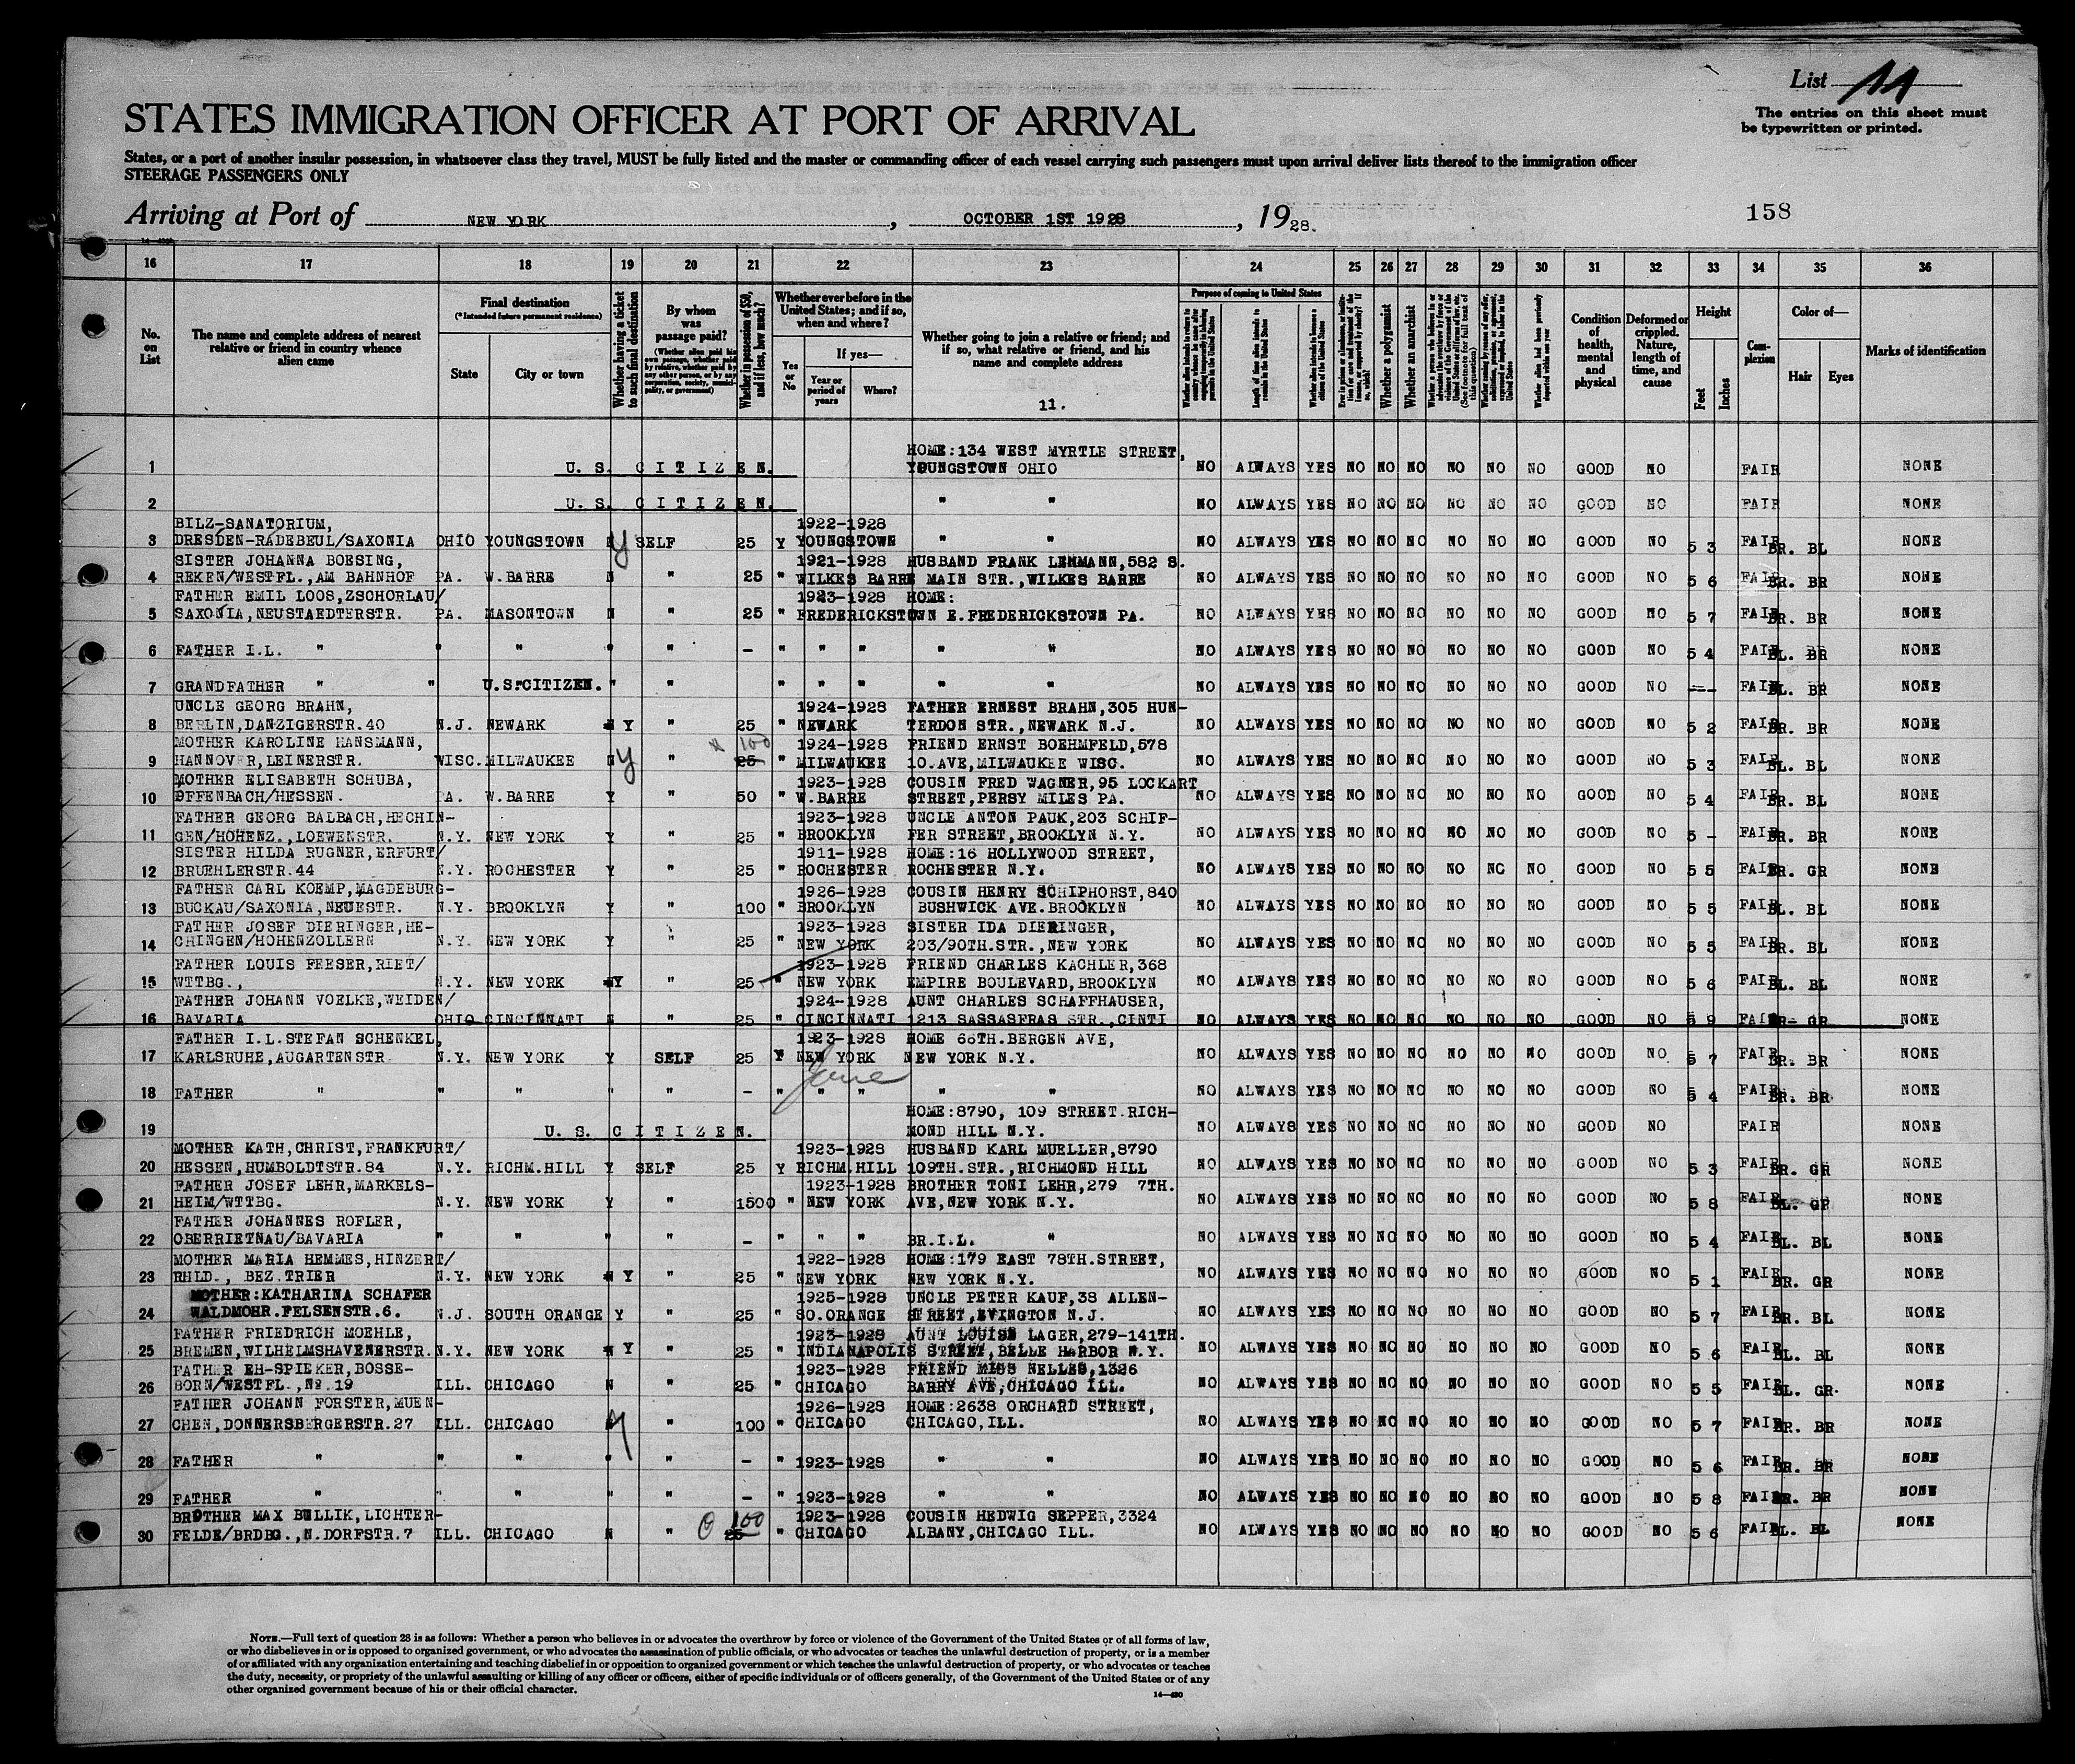 List 11
The entries on this sheet must
be typewritten or printed.
STATES IMMIGRATION OFFICER AT PORT OF ARRIVAL
States, or a port of another insular possession, in whatsoever class they travel, MUST be fully listed and the master or commanding officer of each vessel carrying such passengers must upon arrival deliver lists thereof to the immigration officer
STEERAGE PASSENGERS ONLY
Arriving at Port of NEW YORK, OCTOBER 1ST 1928, 1928.
158
16 17 18 19 20 21 22 23 24 25 26 27 28 29 30 31 32 33 34 35 36
No. on List
The name and complete address of nearest relative or friend in country whence alien came
Final destination
(*Intended future permanent residence)
State
City or town
Whether having a ticket to such final destination
By whom was passage paid?
(Whether alien paid his own passage, whether paid by relative, whether paid by any other person, or by any corporation, society, municipality, or government)
Whether in possession of $50, and if less, how much?
Whether ever before in the United States; and if so, when and where?
Yes or No
If yes—
Year or period of years
Where?
Whether going to join a relative or friend; and if so, what relative or friend, and his name and complete address
11.
Purpose of coming to United States
Length of time alien intends to remain in the United States
Whether alien intends to become a citizen of the United States
Whether a polygamist
Whether an anarchist
Condition of health, mental and physical
Deformed or crippled. Nature, length of time, and cause
Height
Feet
Inches
Complexion
Color of—
Hair
Eyes
Marks of identification
HOME:134 WEST MYRTLE STREET,
1 U. S. CITIZEN. YOUNGSTOWN OHIO NO ALWAYS YES NO NO NO NO NO NO GOOD NO FAIR NONE
2 U. S. CITIZEN. " " NO ALWAYS YES NO NO NO NO NO NO GOOD NO FAIR NONE
BILZ-SANATORIUM, 1922-1928
3 DRESDEN-RADEBEUL/SAXONIA OHIO YOUNGSTOWN N y SELF 25 Y YOUNGSTOWN " " NO ALWAYS YES NO NO NO NO NO NO GOOD NO 5 3 FAIR BR. BL NONE
SISTER JOHANNA BOESING, 1921-1928 HUSBAND FRANK LEHMANN,582 S.
4 REKEN/WESTFL.,AM BAHNHOF PA. W.BARRE N " 25 " WILKES BARRE MAIN STR.,WILKES BARRE NO ALWAYS YES NO NO NO NO NO NO GOOD NO 5 6 FAIR BR. BR NONE
FATHER EMIL LOOS,ZSCHORLAU/ 1923-1928 HOME:
5 SAXONIA,NEUSTAEDTERSTR. PA. MASONTOWN N " 25 " FREDERICKSTOWN E.FREDERICKSTOWN PA. NO ALWAYS YES NO NO NO NO NO NO GOOD NO 5 7 FAIR BR. BR NONE
6 FATHER I.L. " " " " " - " " " " " NO ALWAYS YES NO NO NO NO NO NO GOOD NO 5 4 FAIR BL. BR NONE
7 GRANDFATHER " " U.S.CITIZEN. " " " " " " " NO ALWAYS YES NO NO NO NO NO NO GOOD NO --- FAIR BL. BR NONE
UNCLE GEORG BRAHN, 1924-1928 FATHER ERNEST BRAHN,305 HUN-
8 BERLIN,DANZIGERSTR.40 N.J. NEWARK N Y " 25 " NEWARK TERDON STR.,NEWARK N.J. NO ALWAYS YES NO NO NO NO NO NO GOOD NO 5 2 FAIR BR. BR NONE
MOTHER KAROLINE HANSMANN, 100 1924-1928 FRIEND ERNST BOEHMFELD,578
9 HANNOVER,LEINERSTR. WISC. MILWAUKEE N y " 25 " MILWAUKEE 10.AVE,MILWAUKEE WISC. NO ALWAYS YES NO NO NO NO NO NO GOOD NO 5 3 FAIR BL. BL NONE
MOTHER ELISABETH SCHUBA, 1923-1928 COUSIN FRED WAGNER,95 LOCKART
10 OFFENBACH/HESSEN. PA. W.BARRE Y " 50 " W.BARRE STREET,PERSY MILES PA. NO ALWAYS YES NO NO NO NO NO NO GOOD NO 5 4 FAIR BR. BL NONE
FATHER GEORG BALBACH,HECHIN- 1923-1928 UNCLE ANTON PAUK,203 SCHIF-
11 GEN/HOHENZ.,LOEWENSTR. N.Y. NEW YORK Y " 25 " BROOKLYN FER STREET,BROOKLYN N.Y. NO ALWAYS YES NO NO NO NO NO NO GOOD NO 5 - FAIR BR. BR NONE
SISTER HILDA RUGNER,ERFURT/ 1911-1928 HOME:16 HOLLYWOOD STREET,
12 BRUEHLERSTR.44 N.Y. ROCHESTER Y " 25 " ROCHESTER ROCHESTER N.Y. NO ALWAYS YES NO NO NO NO NO NO GOOD NO 5 5 FAIR BR. GR NONE
FATHER CARL KOEMP,MAGDEBURG- 1926-1928 COUSIN HENRY SCHIPHORST,840
13 BUCKAU/SAXONIA,NEUESTR. N.Y. BROOKLYN Y " 100 " BROOKLYN BUSHWICK AVE.BROOKLYN NO ALWAYS YES NO NO NO NO NO NO GOOD NO 5 5 FAIR BL. BL NONE
FATHER JOSEF DIERINGER,HE- 1923-1928 SISTER IDA DIERINGER,
14 CHINGEN/HOHENZOLLERN N.Y. NEW YORK Y " 25 " NEW YORK 203/90TH.STR.,NEW YORK NO ALWAYS YES NO NO NO NO NO NO GOOD NO 5 5 FAIR BR. BL NONE
FATHER LOUIS FEESER,RIET/ 1923-1928 FRIEND CHARLES KACHLER,368
15 WTTBG., N.Y. NEW YORK NY " 25 " NEW YORK EMPIRE BOULEVARD,BROOKLYN NO ALWAYS YES NO NO NO NO NO NO GOOD NO 5 6 FAIR BL. BL NONE
FATHER JOHANN VOELKE,WEIDEN/ 1924-1928 AUNT CHARLES SCHAFFHAUSER,
16 BAVARIA OHIO CINCINNATI N " 25 " CINCINNATI 1213 SASSASFRAS STR.,CINTI NO ALWAYS YES NO NO NO NO NO NO GOOD NO 5 9 FAIR BR- GR NONE
FATHER I.L.STEFAN SCHENKEL, 1923-1928 HOME 66TH.BERGEN AVE,
17 KARLSRUHE,AUGARTENSTR. N.Y. NEW YORK Y SELF 25 Y NEW YORK NEW YORK N.Y. NO ALWAYS YES NO NO NO NO NO NO GOOD NO 5 7 FAIR BR. BR NONE
18 FATHER " " " " " - " " " " " NO ALWAYS YES NO NO NO NO NO NO GOOD NO 5 4 FAIR BR. BR NONE
HOME:8790, 109 STREET.RICH-
19 U. S. CITIZEN. MOND HILL N.Y. NO ALWAYS YES NO NO NO NO NO NO GOOD NO FAIR NONE
MOTHER KATH,CHRIST,FRANKFURT/ 1923-1928 HUSBAND KARL MUELLER,8790
20 HESSEN,HUMBOLDTSTR.84 N.Y. RICHM.HILL Y SELF 25 Y RICHM.HILL 109TH.STR.,RICHMOND HILL NO ALWAYS YES NO NO NO NO NO NO GOOD NO 5 3 FAIR BR. GR NONE
FATHER JOSEF LEHR,MARKELS- 1923-1928 BROTHER TONI LEHR,279 7TH.
21 HEIM/WTTBG. N.Y. NEW YORK Y " 1500 " NEW YORK AVE,NEW YORK N.Y. NO ALWAYS YES NO NO NO NO NO NO GOOD NO 5 8 FAIR BL. GR NONE
FATHER JOHANNES ROFLER,
22 OBERRIETNAU/BAVARIA " " " " - " " " BR.I.L. " NO ALWAYS YES NO NO NO NO NO NO GOOD NO 5 4 FAIR BL. BL NONE
MOTHER MARIA HEMMES,HINZERT/ 1922-1928 HOME:179 EAST 78TH.STREET,
23 RHLD., BEZ.TRIER N.Y. NEW YORK N Y " 25 " NEW YORK NEW YORK N.Y. NO ALWAYS YES NO NO NO NO NO NO GOOD NO 5 1 FAIR BR. GR NONE
MOTHER:KATHARINA SCHAFER 1925-1928 UNCLE PETER KAUF,38 ALLEN-
24 WALDMOHR.FELSENSTR.6. N.J. SOUTH ORANGE Y " 25 " SO.ORANGE STREET,EVINGTON N.J. NO ALWAYS YES NO NO NO NO NO NO GOOD NO 5 7 FAIR BR. BL NONE
FATHER FRIEDRICH MOEHLE, 1923-1928 AUNT LOUISE LAGER,279-141TH.
25 BREMEN,WILHELMSHAVENERSTR. N.Y. NEW YORK N Y " 25 " INDIANAPOLIS STREET,BELLE HARBOR N.Y. NO ALWAYS YES NO NO NO NO NO NO GOOD NO 5 6 FAIR BL. BL NONE
FATHER EH-SPIEKER,BOSSE- 1923-1928 FRIEND MISS NELLES,1326
26 BORN/WESTFL.,No.19 ILL. CHICAGO N " 25 " CHICAGO BARRY AVE,CHICAGO ILL. NO ALWAYS YES NO NO NO NO NO NO GOOD NO 5 5 FAIR BL. GR. NONE
FATHER JOHANN FORSTER,MUEN- 1926-1928 HOME:2638 ORCHARD STREET,
27 CHEN,DONNERSBERGERSTR.27 ILL. CHICAGO y " 100 " CHICAGO CHICAGO,ILL. NO ALWAYS YES NO NO NO NO NO NO GOOD NO 5 7 FAIR BR. BR NONE
28 FATHER " " " " " - " 1923-1928 " " NO ALWAYS YES NO NO NO NO NO NO GOOD NO 5 6 FAIR BR. BR NONE
29 FATHER " " " " " - " 1923-1928 " " NO ALWAYS YES NO NO NO NO NO NO GOOD NO 5 8 FAIR BR. BR NONE
BROTHER MAX BULLIK,LICHTER- 100 1923-1928 COUSIN HEDWIG SEPPER,3324
30 FELDE/BRDBG.,N.DORFSTR.7 ILL. CHICAGO N " 25 " CHICAGO ALBANY,CHICAGO ILL. NO ALWAYS YES NO NO NO NO NO NO GOOD NO 5 6 FAIR BL. BL NONE
NOTE.—Full text of question 28 is as follows: Whether a person who believes in or advocates the overthrow by force or violence of the Government of the United States or of all forms of law,
or who disbelieves in or is opposed to organized government, or who advocates the assassination of public officials, or who advocates or teaches the unlawful destruction of property, or is a member
of or affiliated with any organization entertaining and teaching disbelief in or opposition to organized government or which teaches the unlawful destruction of property, or who advocates or teaches
the duty, necessity, or propriety of the unlawful assaulting or killing of any officer or officers, either of specific individuals or of officers generally, of the Government of the United States or of any
other organized government because of his or their official character.
14—480